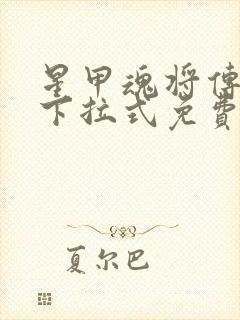 星甲魂将傳
下拉式免費
夏尔巴